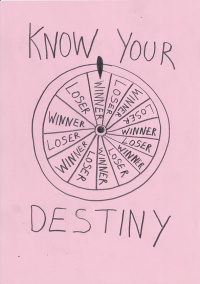 KNOW YOUR
WINNER
LOSER
WINNER
LOSER
WINNER
LOSER
WINNER
LOSER
WINNER
LOSER
WINNER
LOSER
WINNER
LOSER
DESTINY